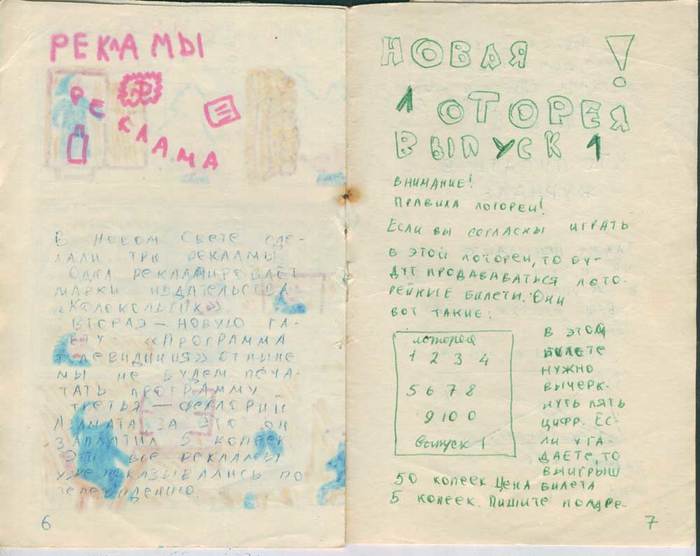 РЕКЛАМЫ
РЕКЛАМА
В НОВОМ СВЕТЕ СДЕ-
ЛАЛИ ТРИ РЕКЛАМЫ
ОДНА РЕКЛАМИРОВАЕТ
МАРКИ ИЗДАТЕЛЬСТВА
«КОЛОКОЛЬЧИК»
ВТОРАЭ — НОВУЮ ГА-
ЗЕТУ: «ПРОГРАММА
ТЕЛЕВИДИНИЯ» ОТНЫНЕ
МЫ НЕ БУДЕМ ПЕЧА-
ТАТЬ ПРОГРАММУ
ТРЕТЬЯ —
ЗА ЭТО ОН
ЗАПЛАТИЛ 5 КОПЕЕК
ЭТИ ВСЕ РЕКЛАМЫ
УЖЕ ПОКАЗЫВАЛИСЬ ПО
ТЕЛЕВИДЕНИЮ.
6
НОВАЯ !
ЛОТОРЕЯ
ВЫПУСК 1
ВНИМАНИЕ!
ПРАВИЛА ЛОТОРЕИ!
ЕСЛИ ВЫ СОГЛАСНЫ ИГРАТЬ
В ЭТОЙ ЛОТОРЕИ, ТО БУ-
ДУТ ПРОДАВАВАТЬСЯ ЛОТО-
РЕЙНЫЕ БИЛЕТИ. ОНИ
ВОТ ТАКИЕ:
лоторея
1 2 3 4
5 6 7 8
9 10 0
Выпуск 1
В ЭТОМ
БИЛЕТЕ
НУЖНО
ВЫЧЕРК-
НУТЬ ПЯТЬ
ЦИФР. ЕС-
ЛИ УГА-
ДАЕТЕ, ТО
ВЫИГРЫШ
50 КОПЕЕК ЦЕНА БИЛЕТА
5 КОПЕЕК. ПИШИТЕ ПОАДРЕ-
7